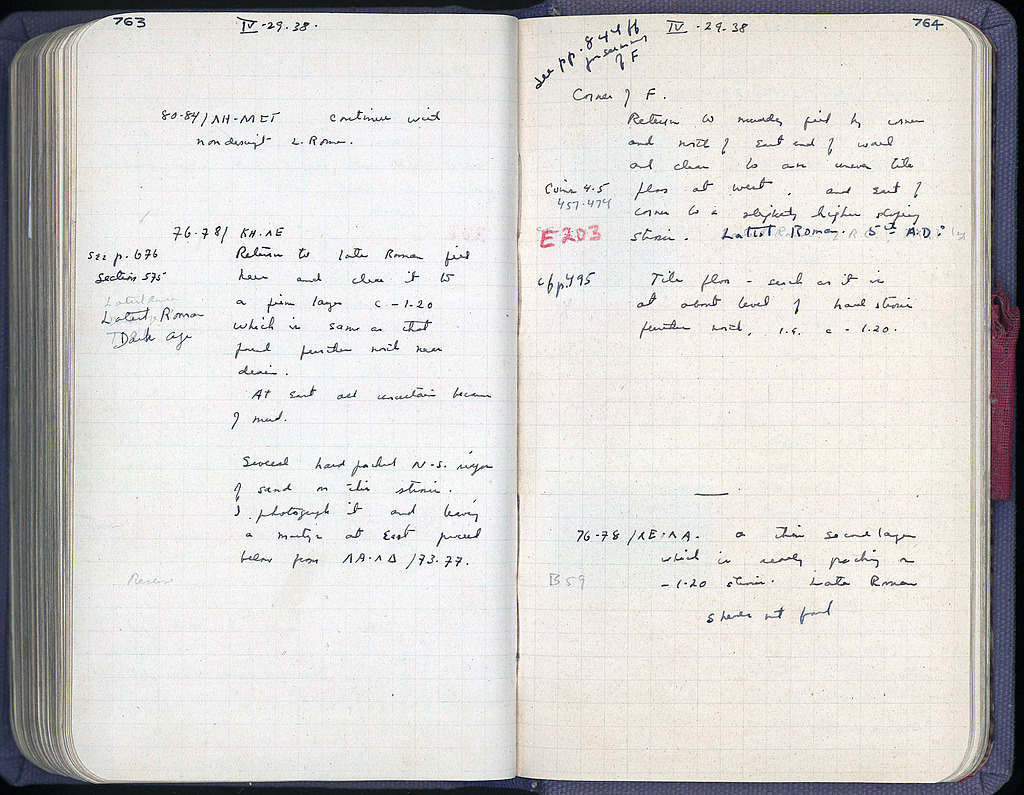 763
IV-29.38.
80-84/ΛH-MET continue with
nondescript L. Roman.
76-78/ KH.ΛE
See p. 676
Section 575
Latest Roman
Dark age
Return to late Roman fill
here and clear it to
a firm layer c -1.20
which is same as that
found further north near
drain.
At East all uncertain because
of mud.
Several hard packed N-S.
of sand on this strosis.
I photograph it and leaving
a martyr at East proceed
below from ΛA-ΛΔ/73.77.
764
IV-29.38
See pp. 844 ff
for
of F
Corner of F.
Return to muddy fill by corner
and north of East end of wall
and clear to an uneven tile
floor at west, and East of
corner to a slightly higher sloping
strosis. Latest Roman. 5th A.D?
Coins 4-5
457-474
E203
cf p. 495
Tile floor - such as it is
at about level of hard strosis
further north, i.e. c -1.20.
76-78/ΛE-ΛA. a thin second layer
which is really packing on
-1.20 strosis. Later Roman
B59
Sherds not found